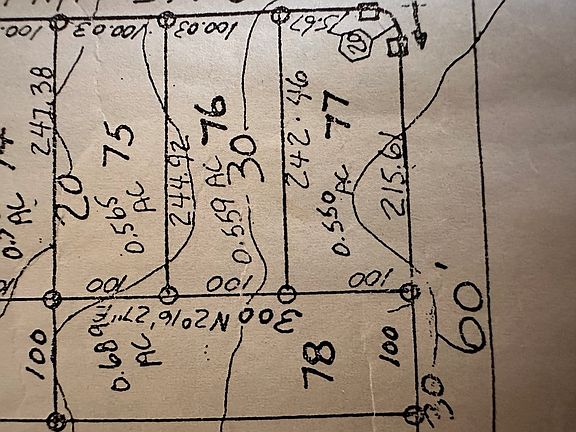 100.03
100.03
75.67
29
247.38
75
0.565
AC
20
AC
244.92
76
0.559
AC
30
242.46
77
0.550
AC
215.61
100
100
100
100
0.689
AC
300 N2°16'27"E
78
100
60'
30